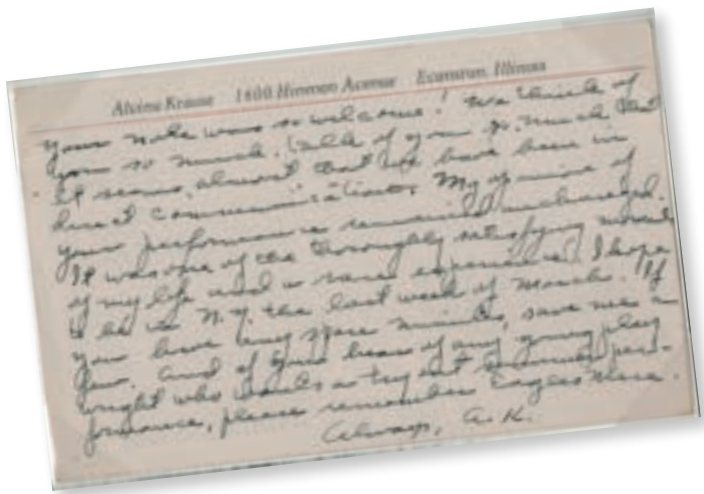 Alvina Krause 1800 Hinman Avenue Evanston, Illinois
Your note was so welcome! We think of
you so much, talk of you so much that
it seems almost that we have been in
direct communication. My opinion of
your performance remained unchanged.
It was one of the thoroughly satisfying moments
of my life and a rare experience. I hope
to be in N.Y. the last week of March. If
you have any spare minutes, save me a
few. And if you hear of any young play
wright who wants a try out summer per-
formance, please remember Eagles Mere.
Always, A.K.